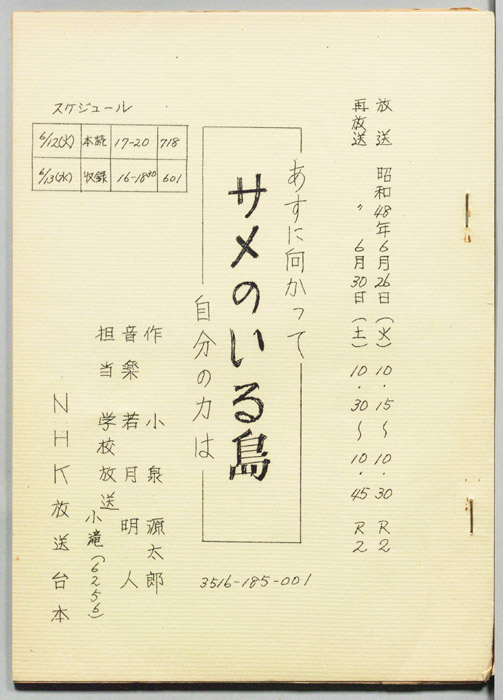 放送 昭和48年6月26日(火) 10.15～10.30 R2
再放送 〃 6月30日(土) 10.30～10.45 R2
あすに向かって
サメのいる島
自分の力は
スケジュール
6/12(火) 本読 17-20 718
6/13(水) 収録 16-18³⁰ 601
作 小泉 源太郎
音楽 若月 明人
担当 学校放送 小滝(6256)
NHK放送台本
3516-185-001